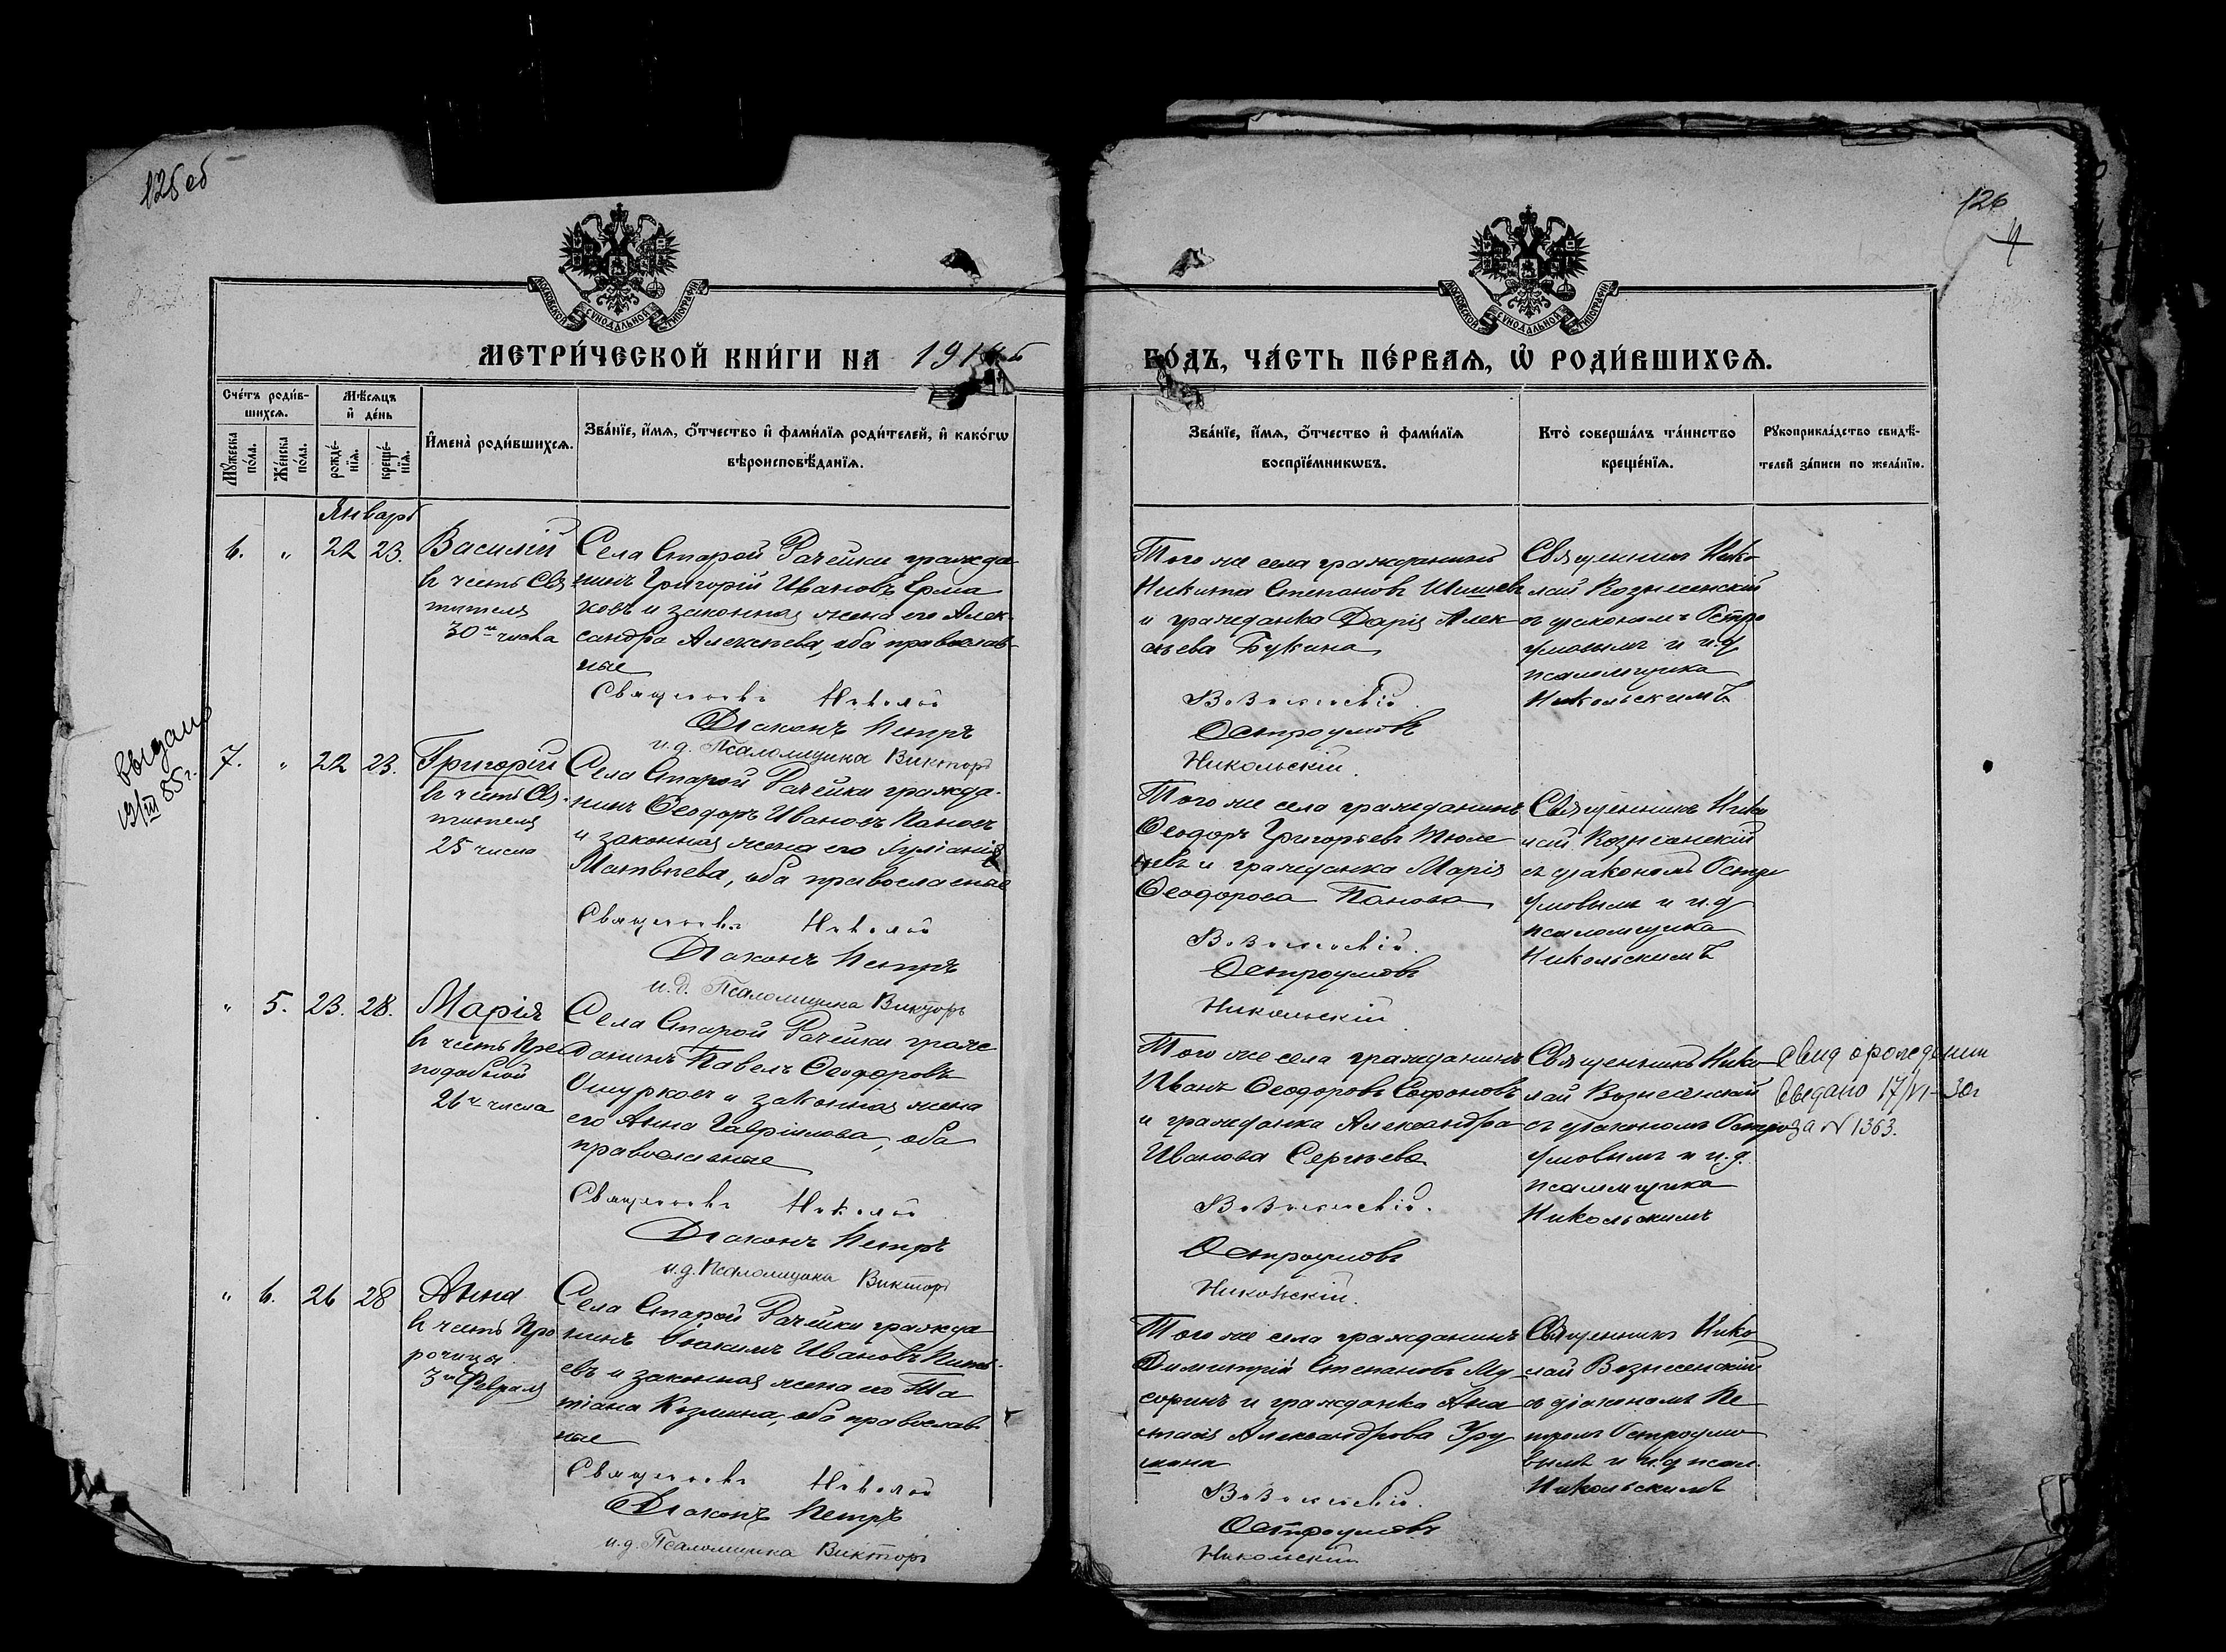 125 об
126
4
МОСКОВСКОЙ СѴНОДАЛЬНОЙ ТИПОГРАФІИ
МОСКОВСКОЙ СѴНОДАЛЬНОЙ ТИПОГРАФІИ
МЕТРИ́ЧЕСКОЙ КНИ́ГИ НА 191
ГО́ДЪ, ЧА́СТЬ ПЕ́РВАѦ, Ѡ҆ РОДИ́ВШИХСѦ.
Сче́тъ роди́в-
шихсѧ.
Мѣ́сѧцъ
и҆ де́нь
Мꙋ́жеска
по́ла.
Же́нска
по́ла.
рожде́-
нїѧ.
креще́-
нїѧ.
И҆мена̀ роди́вшихсѧ.
Зва́нїе, и҆́мѧ, ѻ҆́тчество и҆ фамі́лїѧ роди́телей, и҆ како́гѡ
вѣроисповѣ́данїѧ.
Зва́нїе, и҆́мѧ, ѻ҆́тчество и҆ фамі́лїѧ
воспрїе́мникѡвъ.
Кто̀ соверша́лъ та́инство
креще́нїѧ.
Рꙋкоприкла́дство свидѣ́-
телей за́писи по жела́нїю.
Январь
6. " 22 23.
Василій
въ честь Свя
тителя
30го числа
Села Старой Рачейки гражда
нинъ Григорій Ивановъ Ерма
ковъ и законная жена его Алек
сандра Алексѣева, оба православ-
ные
Священникъ Николай
Діаконъ Петръ
и.д. Псаломщика Викторъ
Того же села гражданинъ
Никита Степановъ
и гражданка Дарія Алек
сѣева Букина
Вознесенскій.
Остроумовъ
Никольскій.
Священникъ Нико
лай Вознесенскій
съ діакономъ Остро
умовымъ и и.д
псаломщика
Никольскимъ
выдано
19/III 85 г.
7. " 22 23.
Григорій
въ честь Свя-
тителя
25 числа
Села Старой Рачейки гражда-
нинъ Ѳеодоръ Ивановъ Пановъ
и законная жена его Іуліанія
Матвѣева, оба православные
Священникъ Николай
Діаконъ Петръ
и.д. Псаломщика Викторъ
Того же села гражданинъ
Ѳеодоръ Григорьевъ Тюле
невъ и гражданка Марія
Ѳеодорова Панова
Вознесенскій.
Остроумовъ
Никольскій.
Священникъ Нико
лай Вознесенскій
съ діакономъ Остро
умовымъ и и.д
псаломщика
Никольскимъ
" 5. 23. 28.
Марія
въ честь Пре
подобной
26го числа
Села Старой Рачейки граж
данинъ Павелъ Ѳеодоровъ
Ошурковъ и законная жена
его Анна Гавріилова, оба
православные
Священникъ Николай
Діаконъ Петръ
и.д. Псаломщика Викторъ
Того же села гражданинъ
Иванъ Ѳеодоровъ Сафоновъ
и гражданка Александра
Иванова Сергѣева
Вознесенскій.
Остроумовъ
Никольскій.
Священникъ Нико
лай Вознесенскій
съ діакономъ Остро
умовымъ и и.д.
псаломщика
Никольскимъ
Свид о рождении
выдано 17/VI-30г
за N 1363.
" 6. 26 28
Анна
въ честь Про
рочицы.
3го Февраля
Села Старой Рачейки гражда
нинъ Іоакимъ Ивановъ
евъ и законная жена его Та
тіана Козмина, оба православ-
ные
Священникъ Николай
Діаконъ Петръ
и.д. Псаломщика Викторъ
Того же села гражданинъ
Димитрій Степановъ Му
соринъ и гражданка Ана
стасія Александрова
Вознесенскій.
Остроумовъ
Никольскій
Священникъ Нико
лай Вознесенскій
съ діакономъ Пе
тромъ Остроумо
вымъ и и.д псал.
Никольскимъ